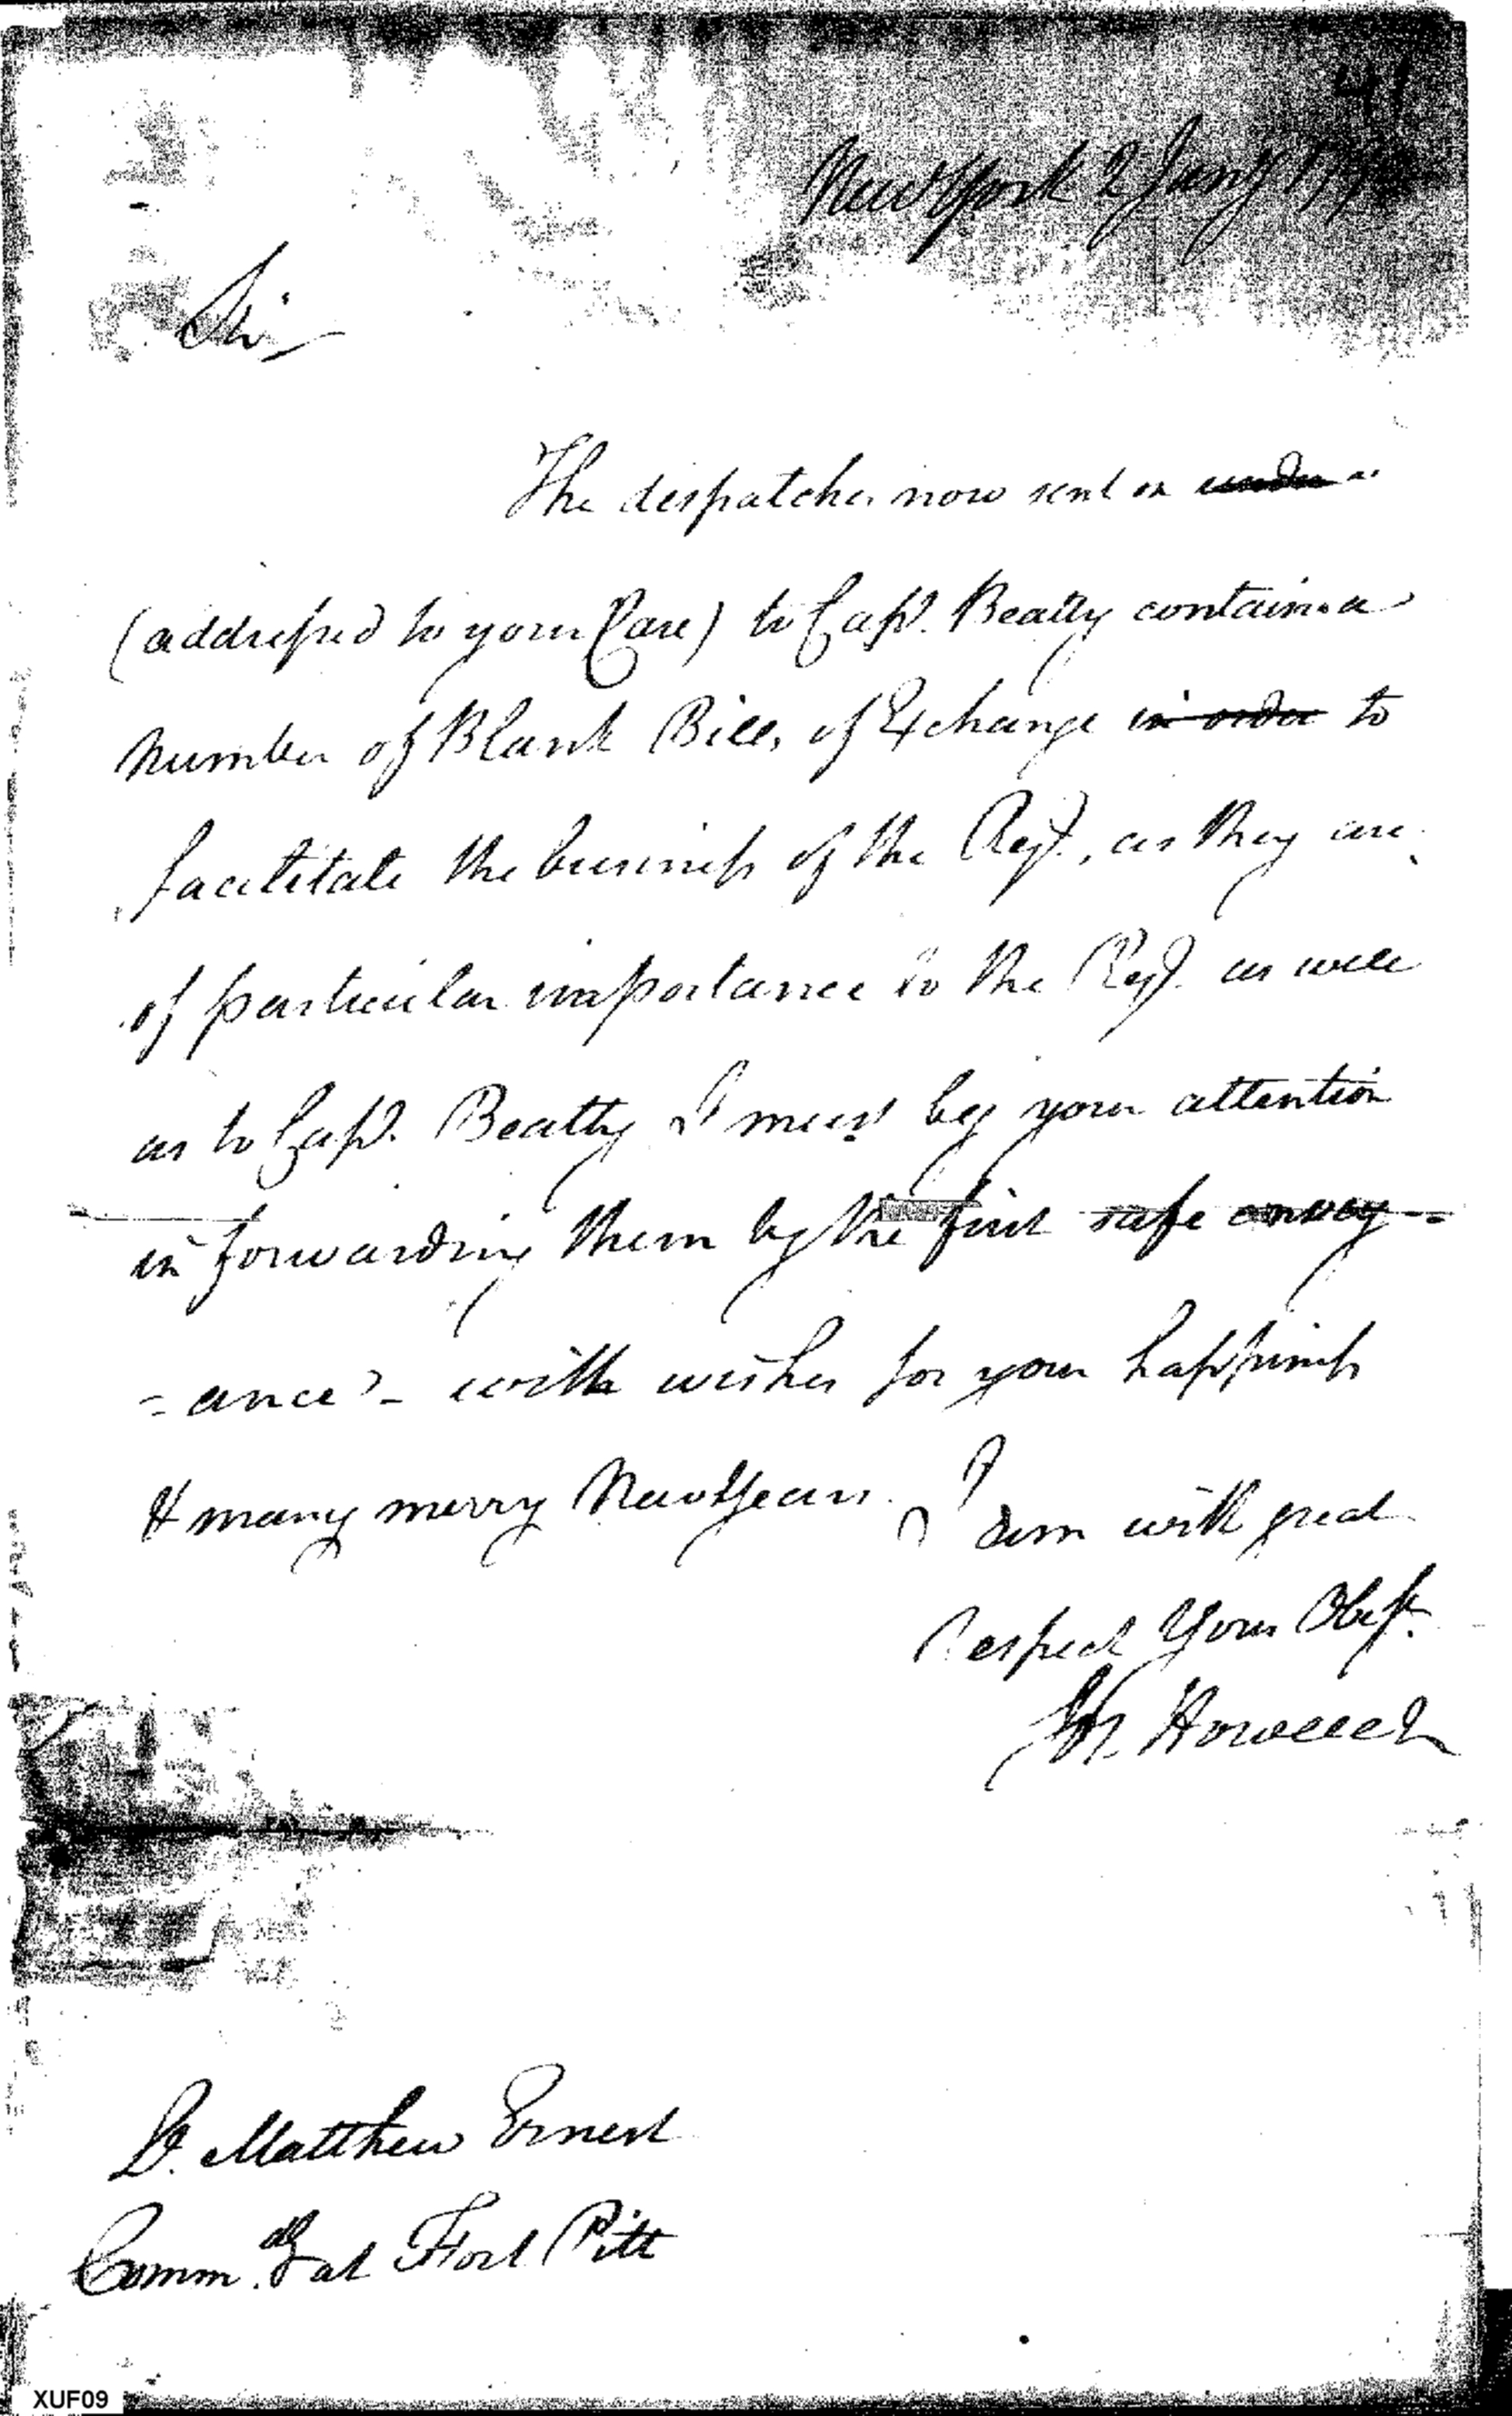 41
New York 2 Jany 17
Sir
The despatches now sent on ~~under~~ a
(addressed to your Care) to Capt. Beatty contain a
Number of Blank Bills of Exchange ~~in order~~ to
facilitate the business of the Regt., as they are
of particular importance to the Regt. as well
as to Capt. Beatty I must beg your attention
in forwarding them by the first safe convey-
=ance - with wishes for your happiness
& many merry New Years. I am with great
respect Your Obest.
Howell
Lt. Matthew Ernest
Commdg at Fort Pitt
XUF09